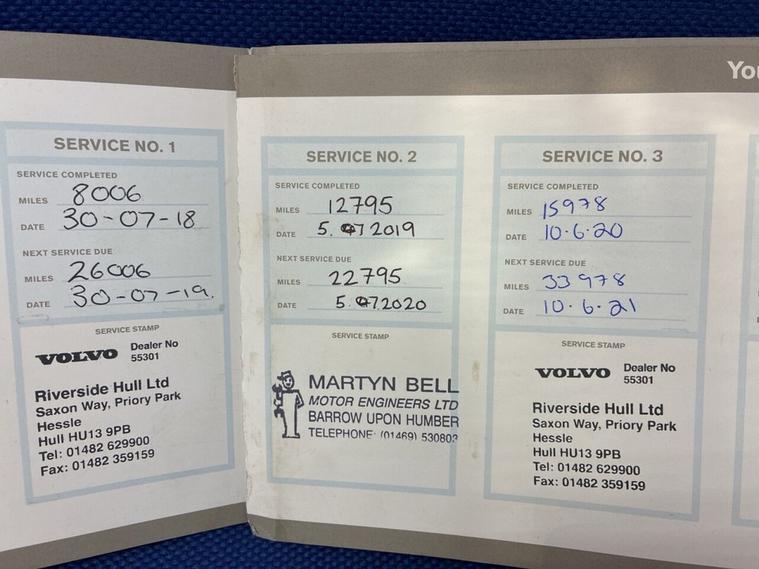 You
SERVICE NO. 1
SERVICE COMPLETED
MILES 8006
DATE 30-07-18
NEXT SERVICE DUE
MILES 26006
DATE 30-07-19.
SERVICE STAMP
VOLVO Dealer No
55301
Riverside Hull Ltd
Saxon Way, Priory Park
Hessle
Hull HU13 9PB
Tel: 01482 629900
Fax: 01482 359159
SERVICE NO. 2
SERVICE COMPLETED
MILES 12795
DATE 5. 07 2019
NEXT SERVICE DUE
MILES 22795
DATE 5. 07.2020
SERVICE STAMP
MARTYN BELL
MOTOR ENGINEERS LTD
BARROW UPON HUMBER
TELEPHONE: (01469) 530803
SERVICE NO. 3
SERVICE COMPLETED
MILES 15978
DATE 10.6.20
NEXT SERVICE DUE
MILES 33978
DATE 10.6.21
SERVICE STAMP
VOLVO Dealer No
55301
Riverside Hull Ltd
Saxon Way, Priory Park
Hessle
Hull HU13 9PB
Tel: 01482 629900
Fax: 01482 359159